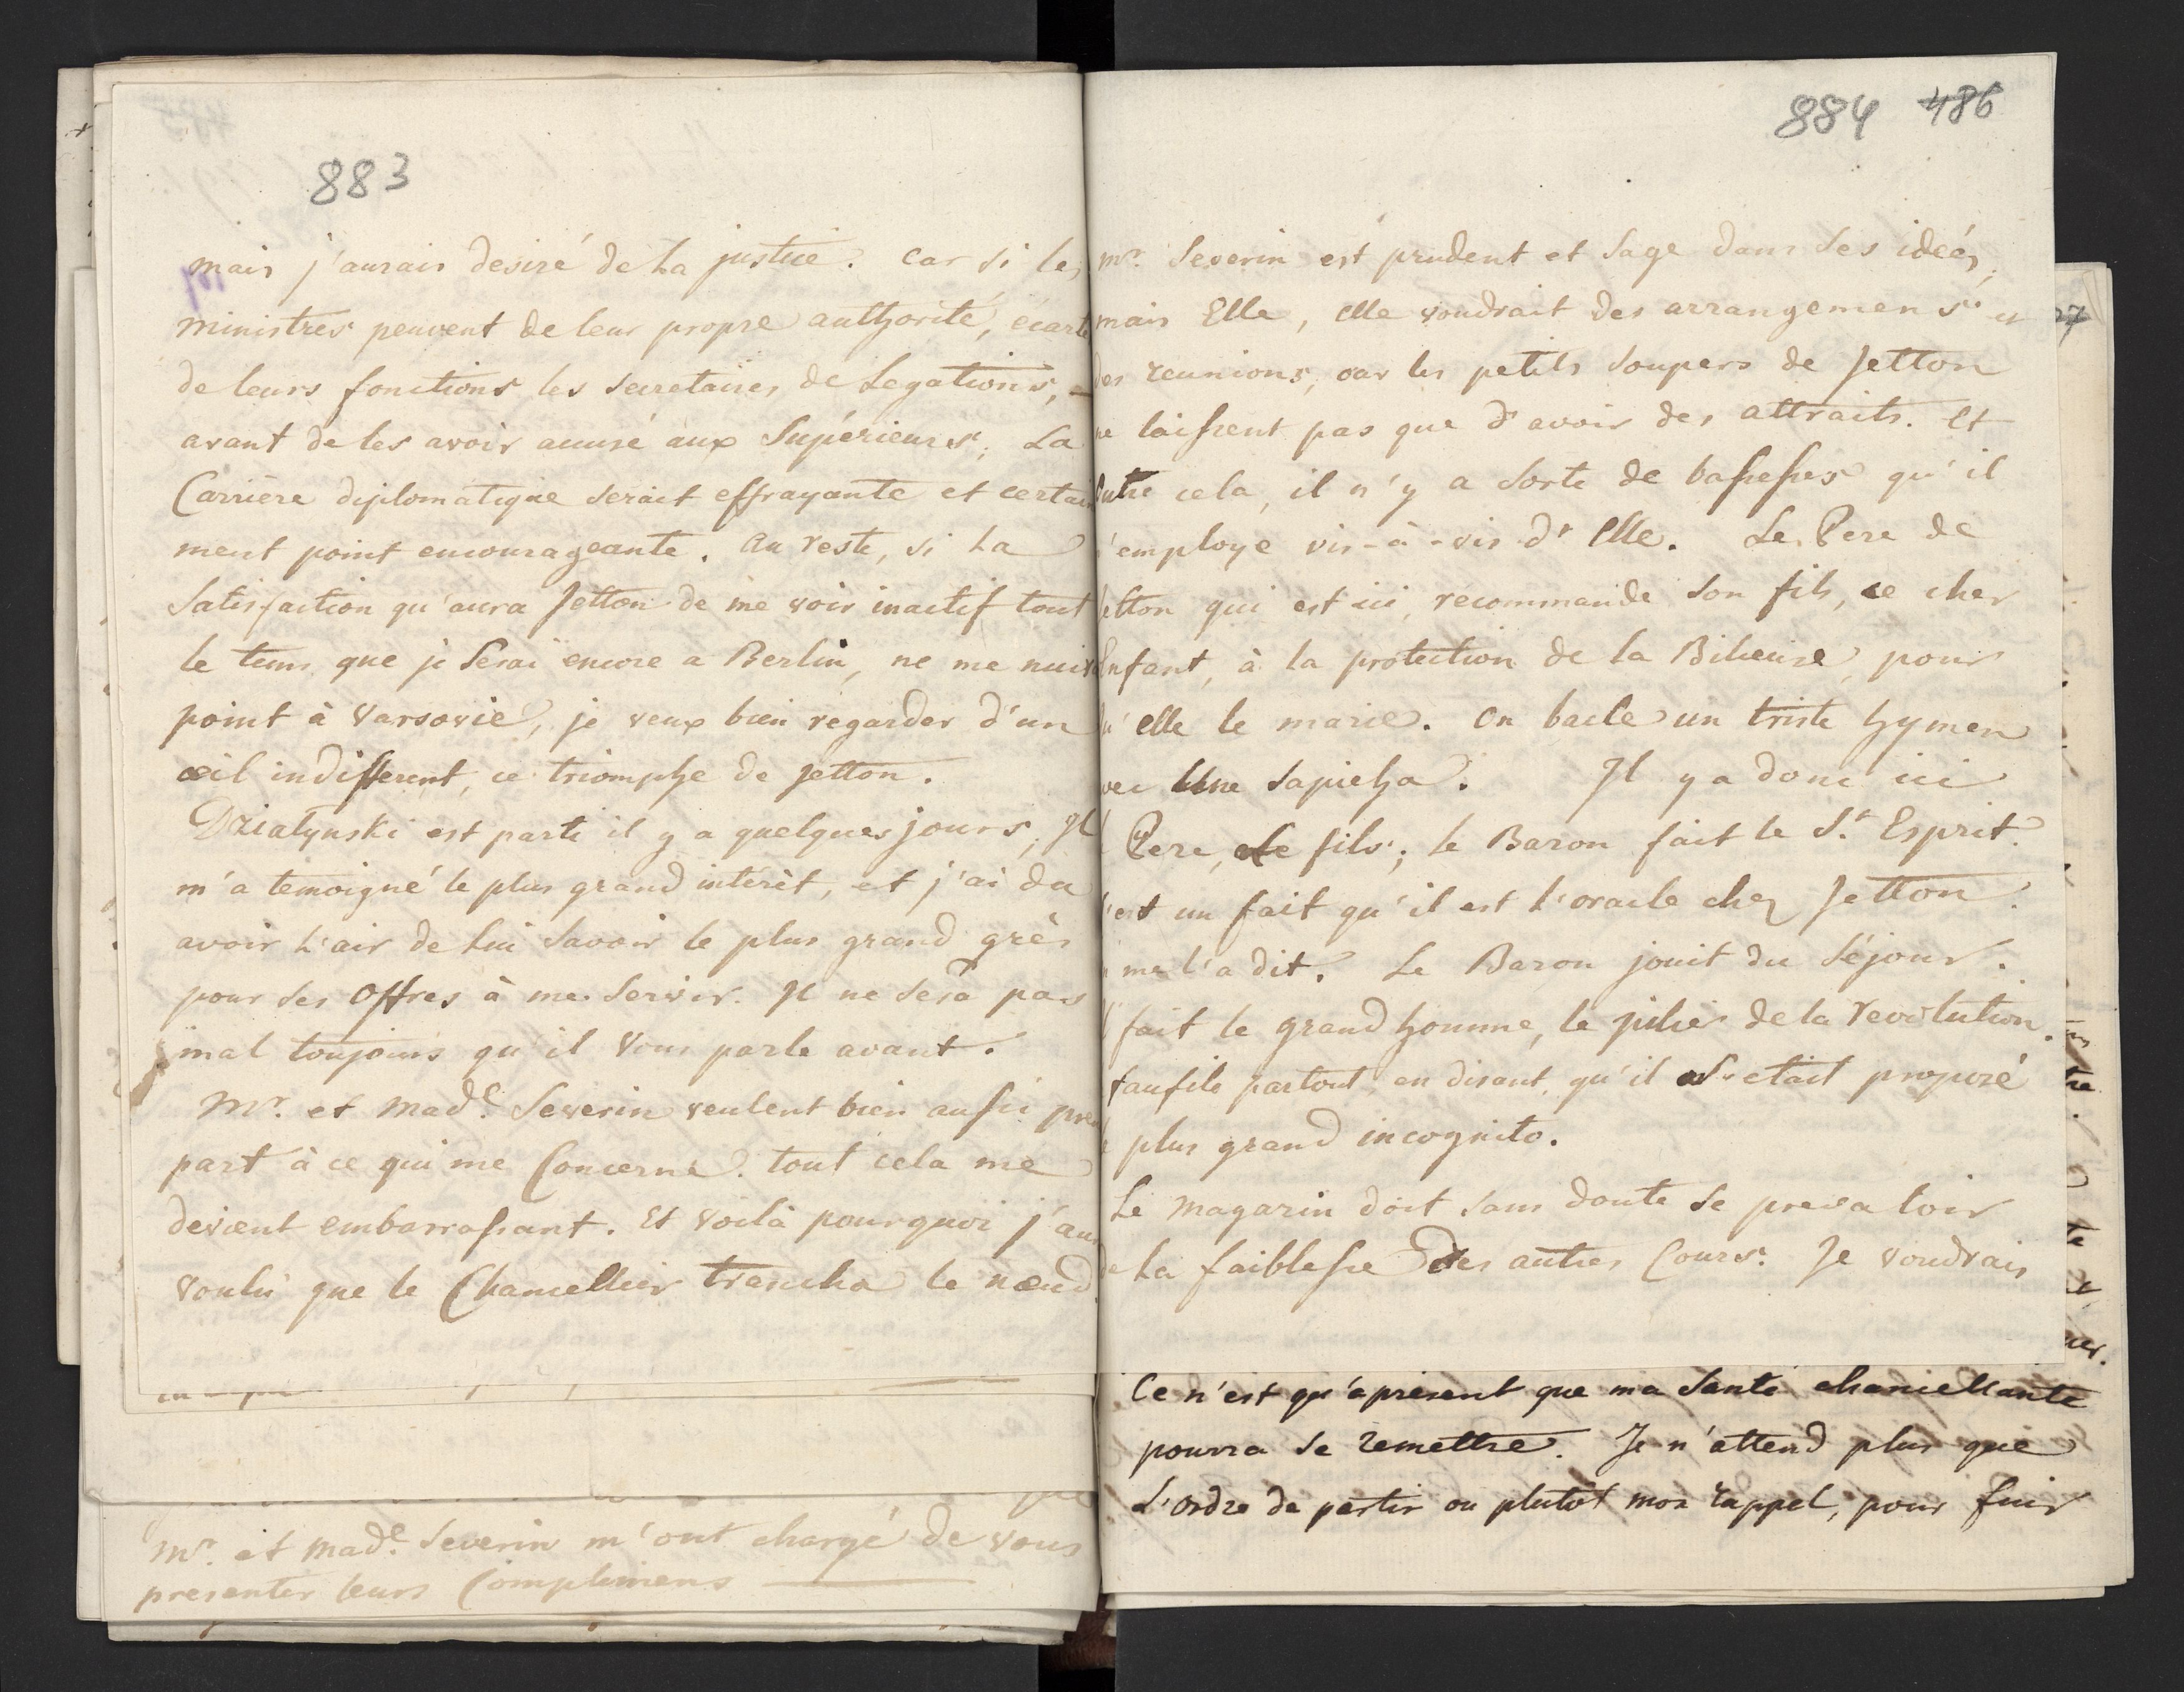 883
mais j'aurais desiré de la justice. Car si les
ministres peuvent de leur propre authorité, ecarte
de leurs fonctions les secretaires de Legations, -
avant de les avoir accusé aux Supérieurs; La
Carrière diplomatique serait effrayante et certain
ment point encourageante. Au reste, si la
Satisfaction qu'aura Jetton de me voir inactif tout
le tems que je serai encore a Berlin, ne me nuise
point à Varsovie, je veux bien regarder d'un
œil indifferent, ce triomphe de Jetton.
Działynski est parti il y a quelques jours, Il
m'a temoigné le plus grand intérèt, et j'ai du
avoir l'air de lui savoir le plus grand grès
pour ses offres à me servir. Il ne sera pas
mal toujours qu'il vous parle avant.
Mr. et Made. Severin veulent bien aussi pren
part à ce qui me Concerne. tout cela me
devient embarrassant. Et voilà pourquoi j'au
voulu que le Chancellier trancha le nœud.
Mr. et Made. Severin m'ont chargé de vous
presenter leurs Complimens
884 486
Mr. Severin est prudent et sage dans ses ideés,
mais Elle, elle voudrait des arrangemens et
des reunions, car les petits soupers de Jetton
ne laissent pas que d'avoir des attraits. Et
outre cela, il n'y a sorte de bassesses qu'il
n'employe vis-à-vis d'Elle. Le Pere de
Jetton qui est ici, recommande son fils, ce cher
Enfant, à la protection de la Bilieuse, pour
qu'elle le marie. On bacle un triste hymen
vec Une Sapieha. Il y a donc ici
Pere, le fils; le Baron fait le St. Esprit.
C'est un fait qu'il est l'oracle chez Jetton.
me l'a dit. Le Baron jouit du séjour.
fait le grand homme, le pilier de la revolution.
faufile partout, en disant, qu'il s'etait proposé
plus grand incognito.
Le magazin doit sans doute se prevaloir
de la faiblesse des autres Cours. Je voudrais
27
Ce n'est qu'apresent que ma Santé chancellante
pourra se remettre. Je n'attend plus que
L'ordre de partir ou plutôt mon rappel, pour fuir